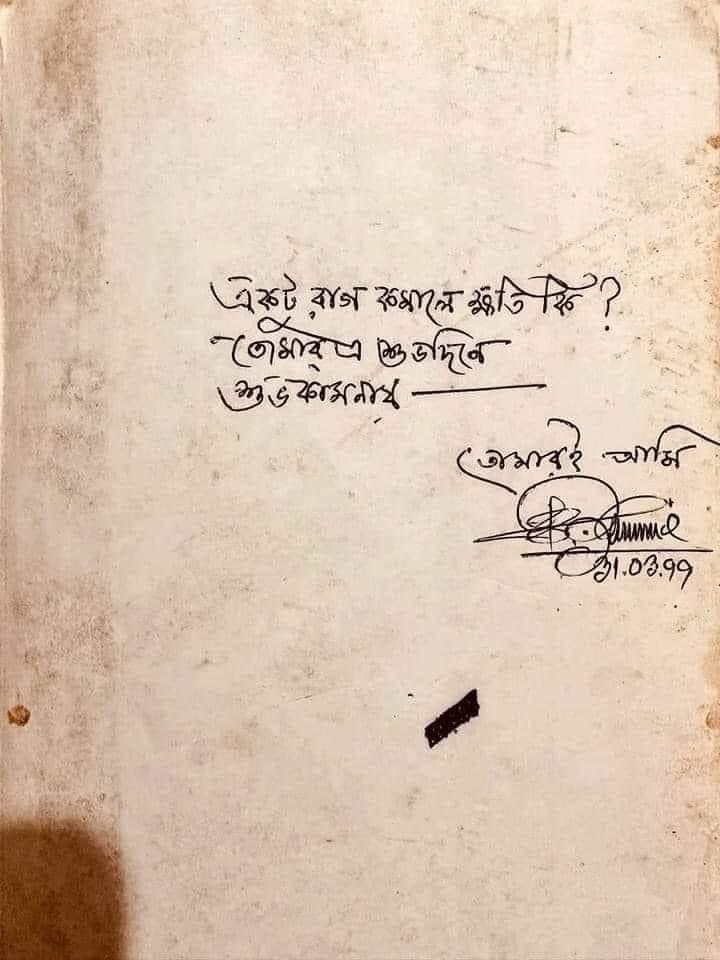 একটু রাগ কমালে ক্ষতি কি ?
তোমার এ শুভদিনে
শুভকামনায় —
তোমারই আমি
31.03.99